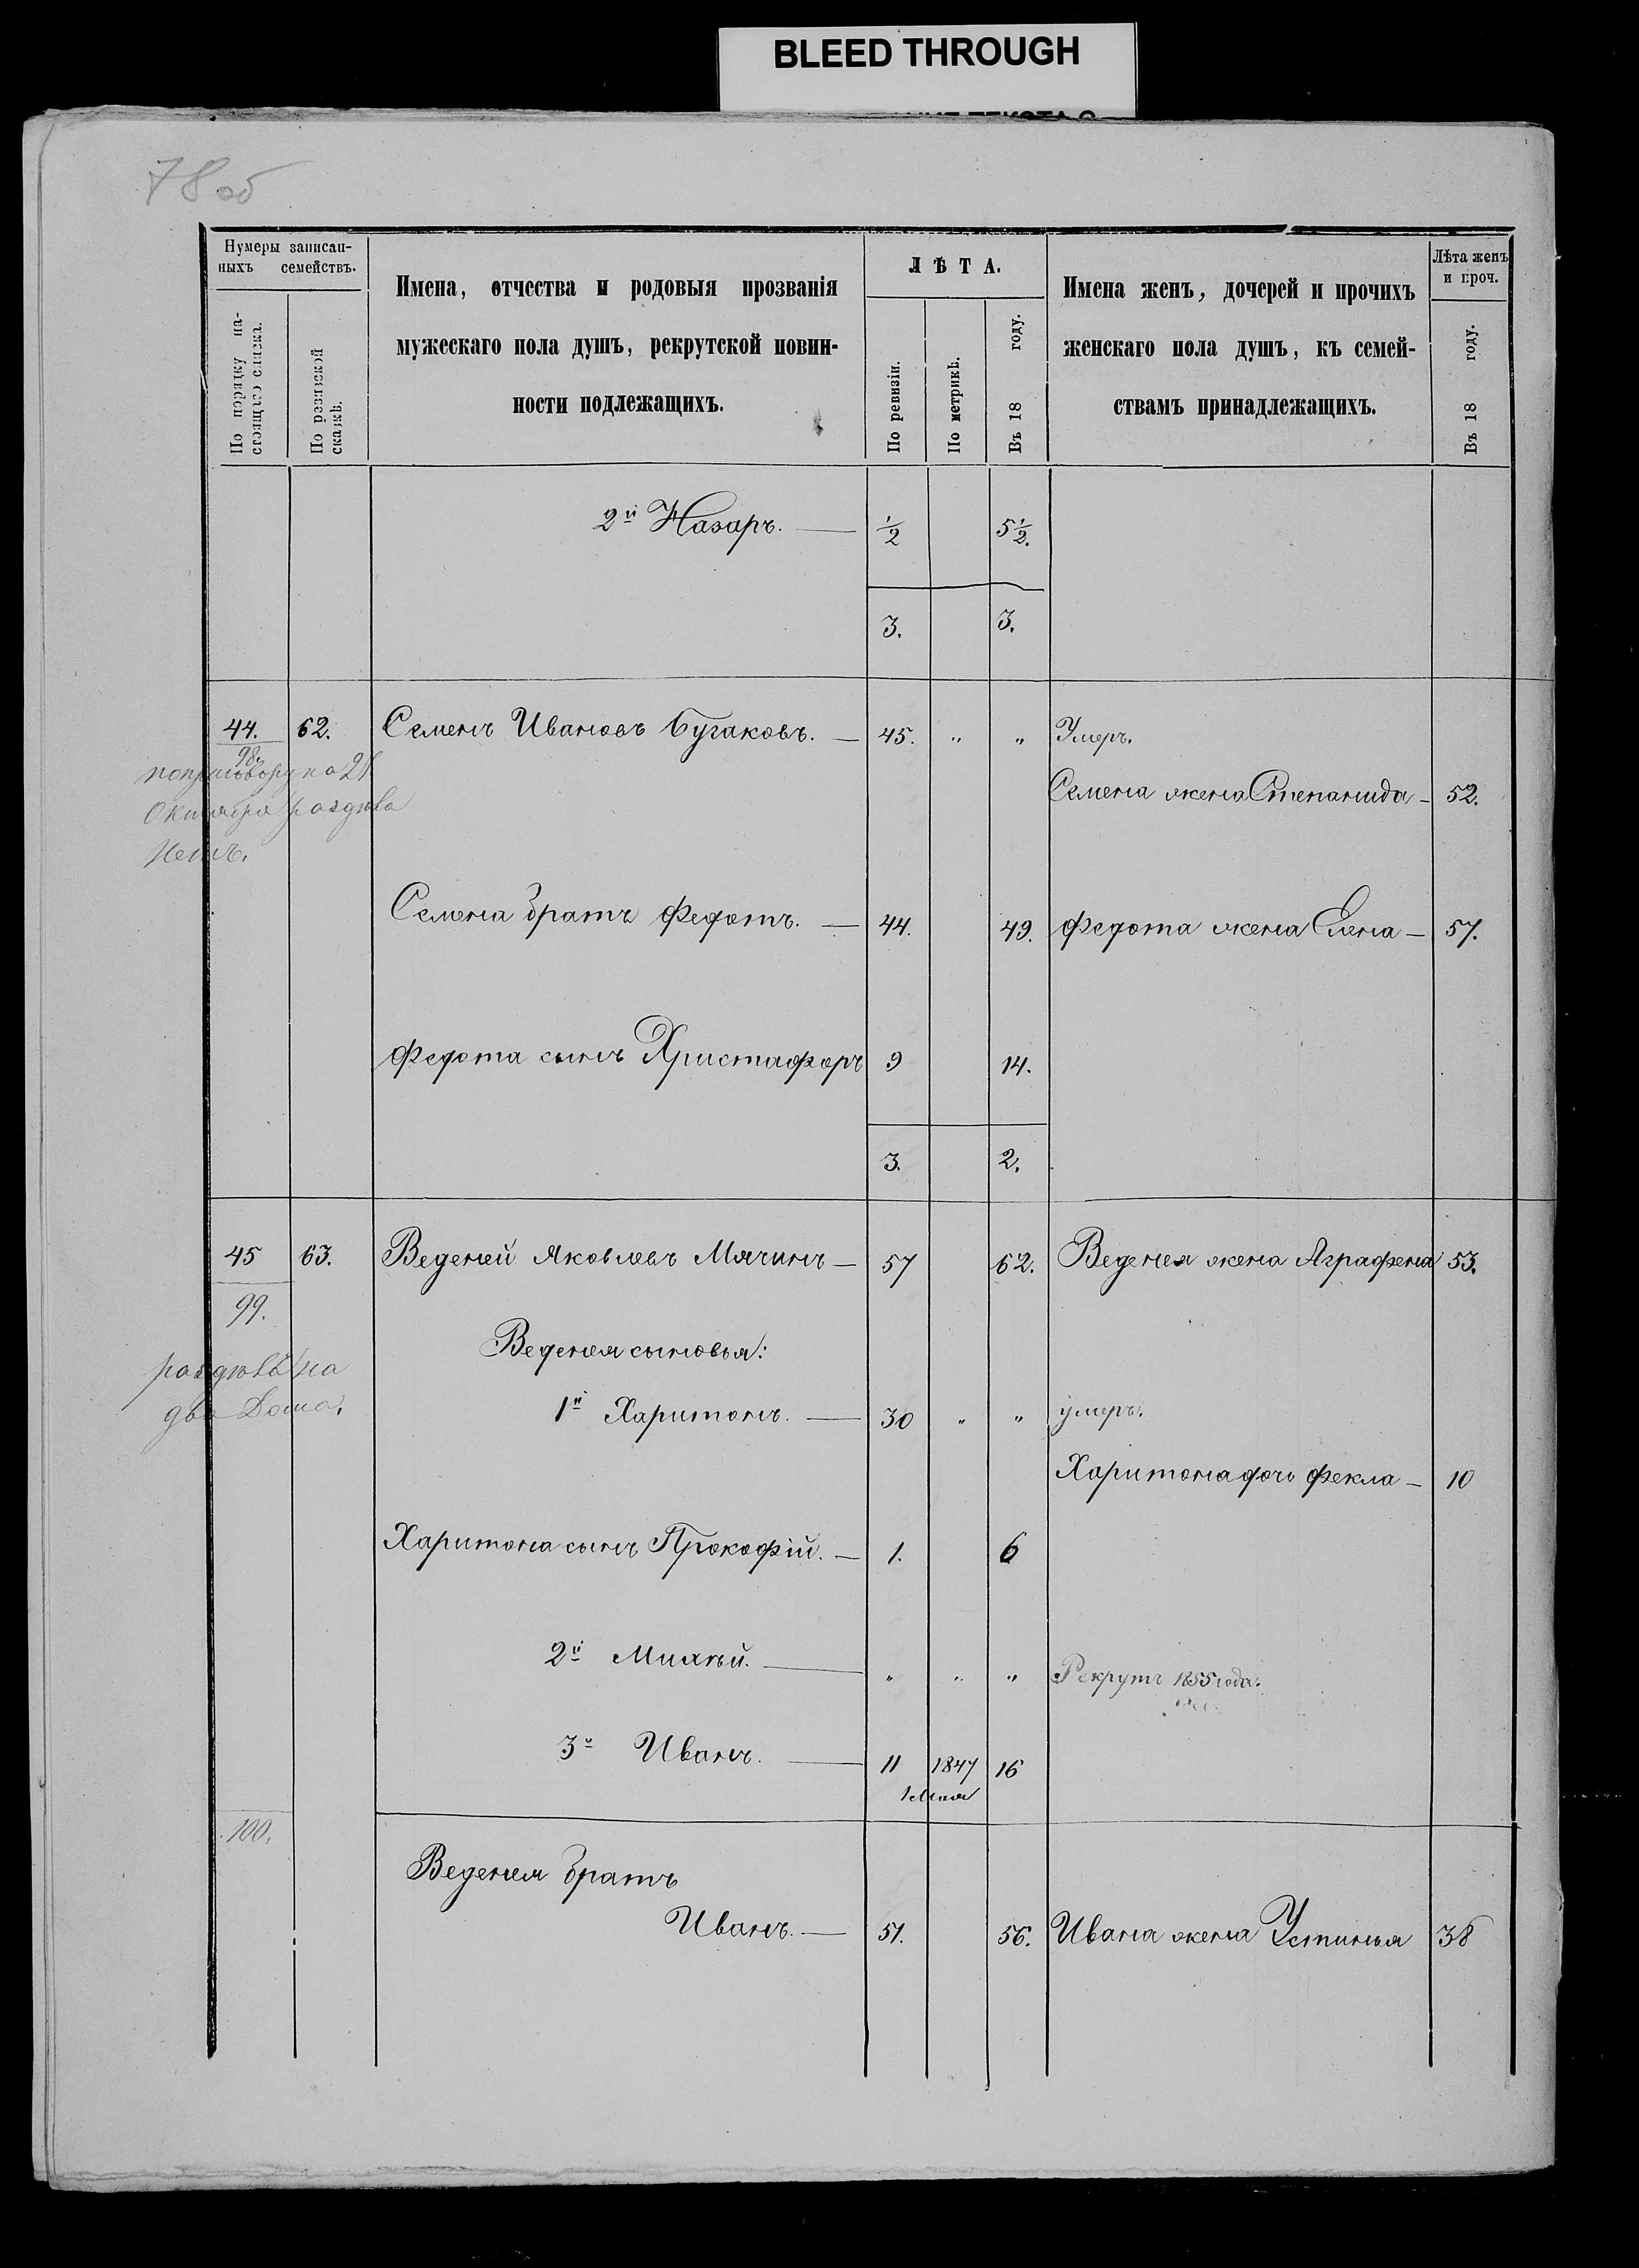 BLEED THROUGH
78 об
Нумеры записан-
ныхъ семействъ.
По порядку на-
стоящаго списка.
По ревизской
сказкѣ.
Имена, отчества и родовыя прозванія
мужескаго пола душъ, рекрутской повин-
ности подлежащихъ.
ЛѢТА.
По ревизіи.
По метрикѣ.
Въ 18 году.
Имена женъ, дочерей и прочихъ
женскаго пола душъ, къ семей-
ствамъ принадлежащихъ.
Лѣта женъ
и проч.
Въ 18 году.
2й Назаръ. — 1/2 5 1/2.
3. 3.
44. 62. Семенъ Ивановъ Бугаковъ. — 45. " " Умеръ.
98.
по приговору на 21
Октября раздѣла
Нетъ.
Семена жена Степанида — 52.
Семена братъ Федотъ. — 44. 49. Федота жена Елена — 57.
Федота сынъ Христафоръ 9 14.
3. 2.
45 63. Веденей Яковлевъ Мячинъ — 57 62. Веденея жена Аграфена 53.
99.
Веденея сыновья:
раздѣлъ на
два Дома.
1й Харитонъ. — 30 " " умеръ.
Харитона дочь Фекла — 10
Харитона сынъ Прокофій. — 1. 6
2й Михѣй. — " " " Рекрутъ 1855 года.
3й Иванъ. — 11 1847 16
1 Мая
100.
Веденея братъ
Иванъ. — 51. 56. Ивана жена Устинья 38